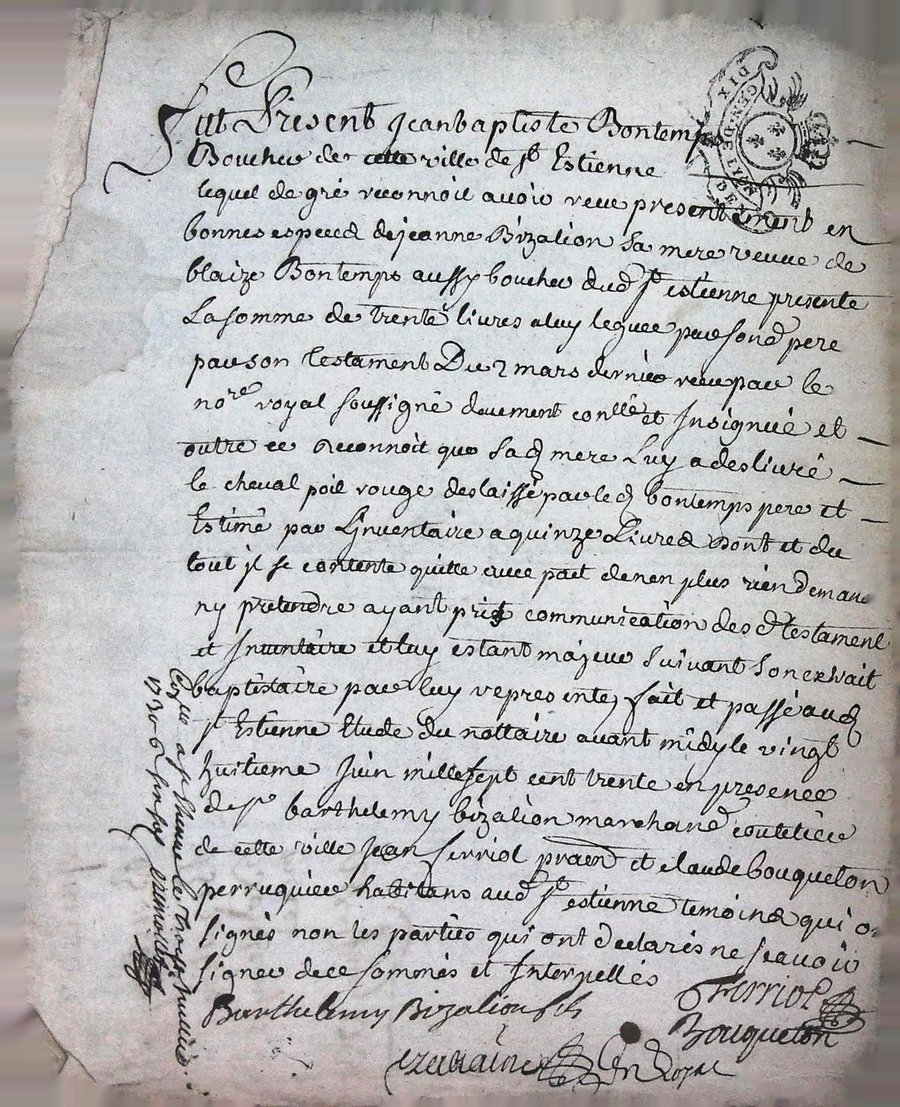 Fut Present Jeanbaptiste Bontemps
Boucher de cette ville de St Estienne
lequel de gré reconnoit avoir receu presentement en
bonnes especes de jeanne Bizalion sa mere veuve de
blaize Bontemps aussy boucher dud St estienne presente
La somme de trente livres a luy leguée par sond pere
par son testament Du 2 mars dernier receu par le
nore royal soussigné deuement conllé et Insignué et
outre ce reconnoit que sad mere Luy a deslivré
le cheval poil rouge deslaissé par led bontemps pere et
Estimé par L'Inventaire a quinze Livres Dont et du
tout jl se contente quitte avec pait de nen plus rien deman
ny pretendre ayant pris communication desd testament
et Inventaire et luy estant majeur suivant son extrait
baptistaire par luy representé, fait et passé aud
St Estienne Etude du nottaire avant midy le vingt
huitieme Juin mille sept cent trente en presence
de Sr barthelemy bizalion marchand coutelier
de cette ville Jean ferriol pratn et claude bouqueton
perruquier habitans aud St estienne temoins qui o
signés non les parties qui ont declarés ne scavoir
signer de ce sommés et Interpellés
Barthelemy Bizalion
Ferriol
Bouqueton
Nre Royal
a St Etienne le trois juillet
1730
DIX
GEN. DE LYON
DEN